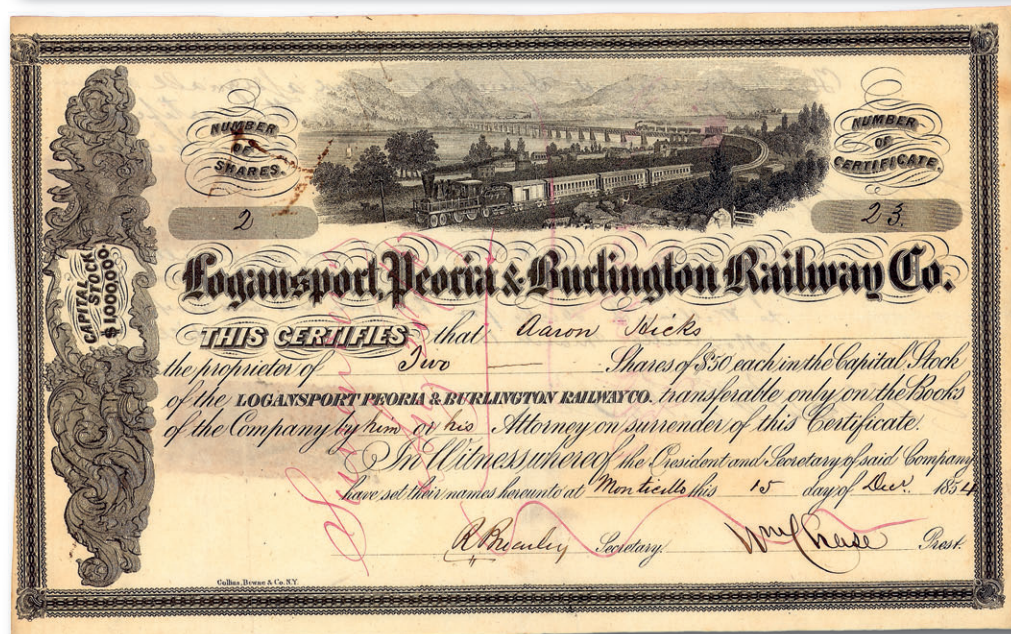 NUMBER
OF
SHARES.
2
NUMBER
OF
CERTIFICATE.
23.
CAPITAL STOCK
$1,000,000.
Logansport, Peoria & Burlington Railway Co.
THIS CERTIFIES that Aaron Hicks
the proprietor of Two Shares of $50 each in the Capital Stock
of the LOGANSPORT PEORIA & BURLINGTON RAILWAY CO. transferable only on the Books
of the Company by him or his Attorney on surrender of this Certificate.
In Witness whereof the President and Secretary of said Company
have set their names hereunto at Monticello this 15 day of Decr. 1854
Secretary. Wm Chase Prest.
Collins, Bowne & Co. N.Y.